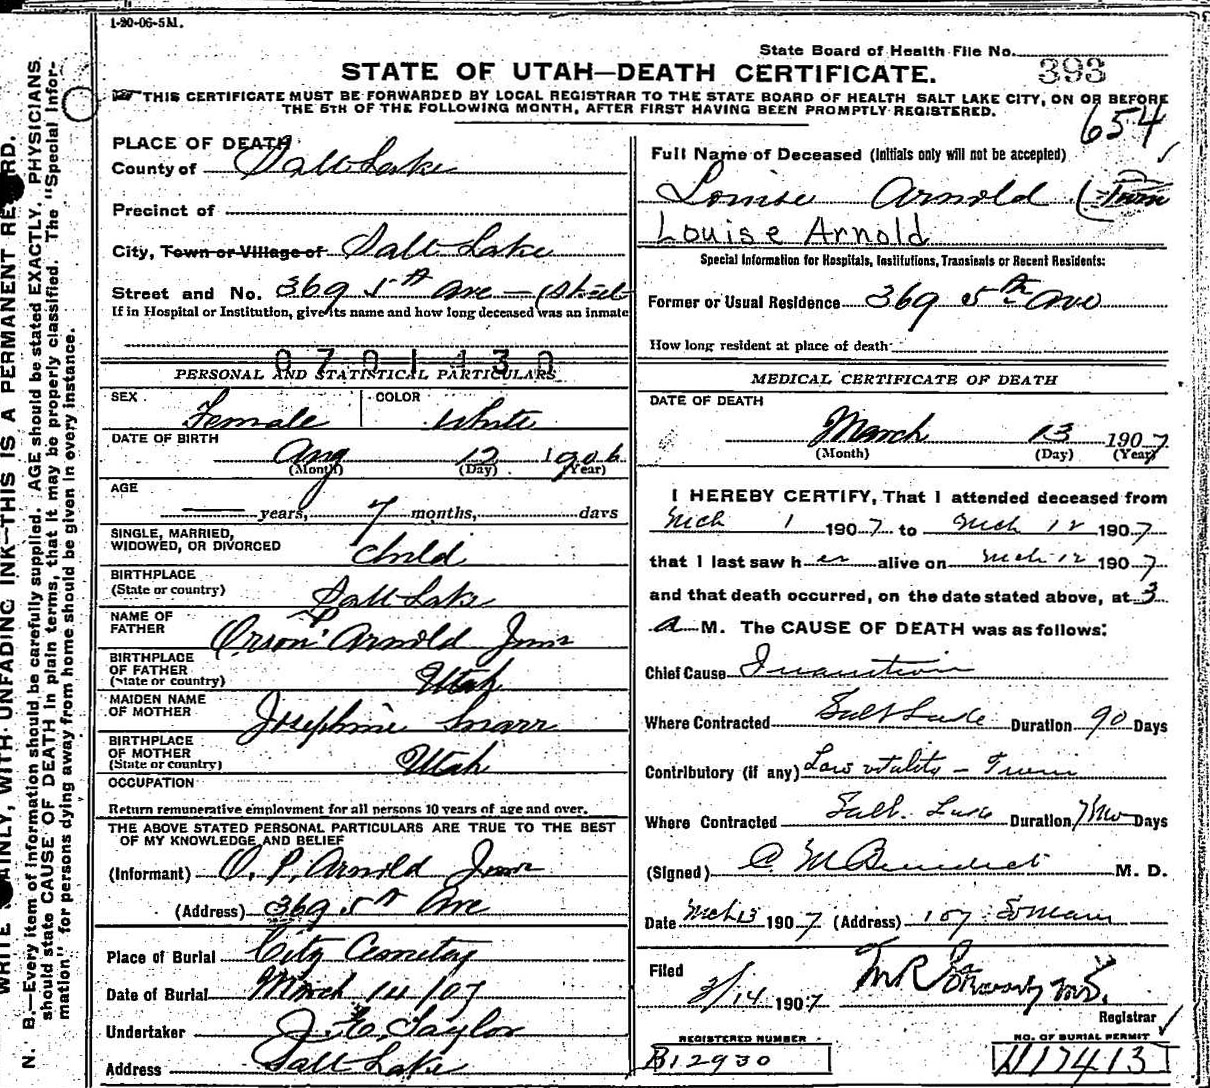 1-20-06-5M.
State Board of Health File No. 393
STATE OF UTAH—DEATH CERTIFICATE.
THIS CERTIFICATE MUST BE FORWARDED BY LOCAL REGISTRAR TO THE STATE BOARD OF HEALTH SALT LAKE CITY, ON OR BEFORE
THE 5TH OF THE FOLLOWING MONTH, AFTER FIRST HAVING BEEN PROMPTLY REGISTERED.
654
PLACE OF DEATH
County of Salt Lake
Precinct of
City, Town or Village of Salt Lake
Street and No. 369 5th Ave — (Street
If in Hospital or Institution, give its name and how long deceased was an inmate
0701430
PERSONAL AND STATISTICAL PARTICULARS
SEX Female COLOR White
DATE OF BIRTH
Aug 12 1906
(Month) (Day) (Year)
AGE
years, 7 months, days
SINGLE, MARRIED,
WIDOWED, OR DIVORCED child
BIRTHPLACE
(State or country) Salt Lake
NAME OF
FATHER Orson P Arnold Junr
BIRTHPLACE
OF FATHER
(State or country) Utah
MAIDEN NAME
OF MOTHER Josephine Snarr
BIRTHPLACE
OF MOTHER
(State or country) Utah
OCCUPATION
Return remunerative employment for all persons 10 years of age and over.
THE ABOVE STATED PERSONAL PARTICULARS ARE TRUE TO THE BEST
OF MY KNOWLEDGE AND BELIEF
(Informant) O. P. Arnold Junr
(Address) 369 5th Ave
Place of Burial City Cemetery
Date of Burial March 14/07
Undertaker Taylor
Address Salt Lake
Full Name of Deceased (Initials only will not be accepted)
Louise Arnold (Twin
Louise Arnold
Special Information for Hospitals, Institutions, Transients or Recent Residents:
Former or Usual Residence 369 5th Ave
How long resident at place of death
MEDICAL CERTIFICATE OF DEATH
DATE OF DEATH
March 13 1907
(Month) (Day) (Year)
I HEREBY CERTIFY, That I attended deceased from
Mch 1 1907 to Mch 12 1907
that I last saw her alive on Mch 12 1907
and that death occurred, on the date stated above, at 3
a M. The CAUSE OF DEATH was as follows:
Chief Cause Inanition
Where Contracted Salt Lake Duration 90 Days
Contributory (if any) Low vitality – Twin
Where Contracted Salt Lake Duration 7 Mo Days
(Signed) C. M. Benedict M. D.
Date Mch 13 1907 (Address) 107 So Main
Filed
3/14 1907
Registrar
REGISTERED NUMBER
B12930
NO. OF BURIAL PERMIT
17413
WRITE PLAINLY, WITH UNFADING INK—THIS IS A PERMANENT RECORD.
N. B.—Every item of information should be carefully supplied. AGE should be stated EXACTLY. PHYSICIANS
should state CAUSE OF DEATH in plain terms, that it may be properly classified. The "Special Infor-
mation" for persons dying away from home should be given in every instance.